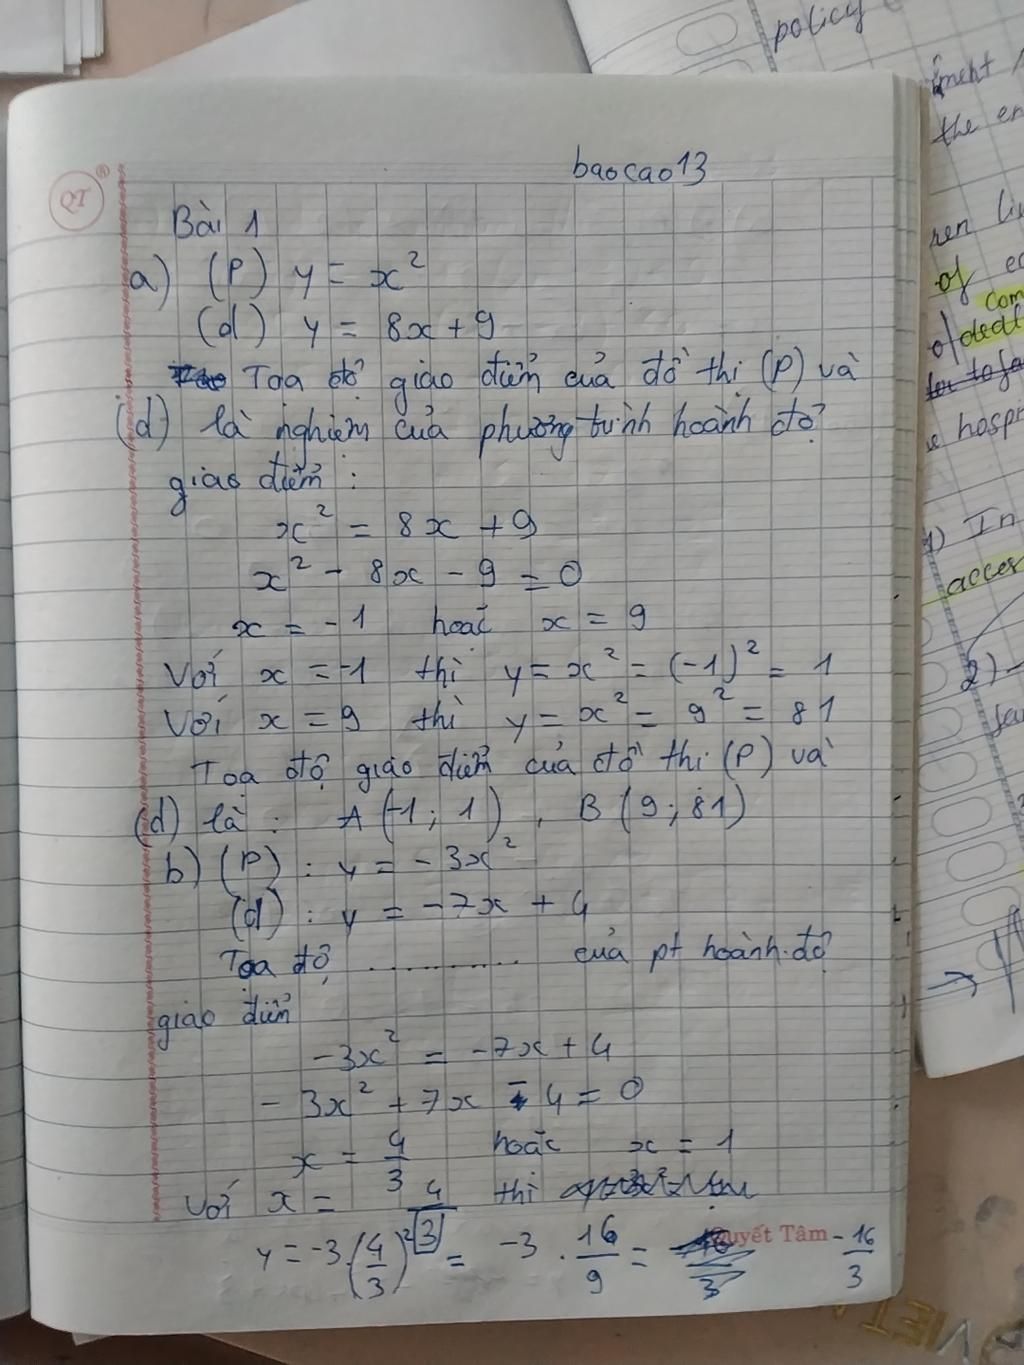 policy
ment
the en
ren liv
of
com
of dedl
hospi
1) In
acces
2)
QT
baocao13
Bài 1
a) (P) y = x²
(d) y = 8x + 9
Tọa độ giao điểm của đồ thị (P) và
(d) là nghiệm của phương trình hoành độ
giao điểm :
x² = 8x + 9
x² - 8x - 9 = 0
x = -1 hoặc x = 9
Với x = -1 thì y = x² = (-1)² = 1
Với x = 9 thì y = x² = 9² = 81
Tọa độ giao điểm của đồ thị (P) và
(d) là : A (-1 ; 1) , B (9 ; 81)
b) (P) : y = -3x²
(d) : y = -7x + 4
Tọa độ .............. của pt hoành độ
giao điểm
-3x² = -7x + 4
- 3x² + 7x - 4 = 0
x = 4/3 hoặc x = 1
Với x = 4/3 thì
y = -3.(4/3)² = -3 . 16/9 = -16/3
Quyết Tâm